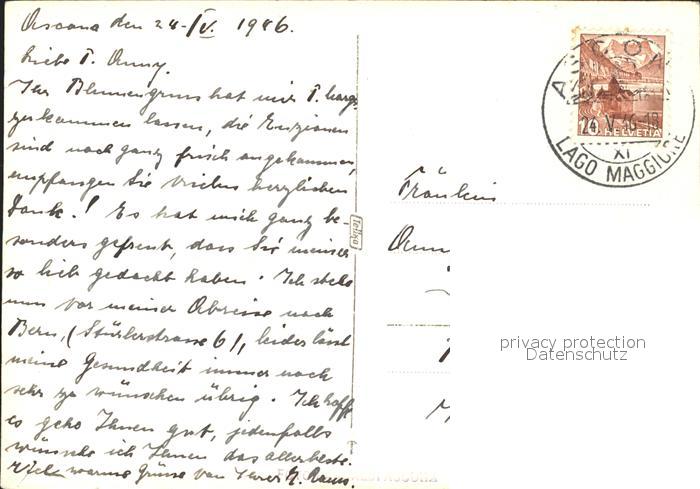 Ascona den 24./V. 1946.
Liebe T. Anny.
Ihr Blumengruss hat mir T. Marg.
zukommen lassen, die Enzianen
sind noch ganz frisch angekommen,
empfangen Sie vielen herzlichen
Dank! Es hat mich ganz be-
sonders gefreut, dass Sie meiner
so lieb gedacht haben. Ich stehe
nun vor meiner Abreise nach
Bern, (Stürlerstrasse 6), leider lässt
meine Gesundheit immer noch
sehr zu wünschen übrig. Ich hoffe
es gehe Ihnen gut, jedenfalls
wünsche ich Ihnen das allerbeste.
warme Grüsse von Ihrer
Telika
ASCONA
24.V.46-18
XI
LAGO MAGGIORE
10 HELVETIA
Fräulein
Ann
privacy protection
Datenschutz